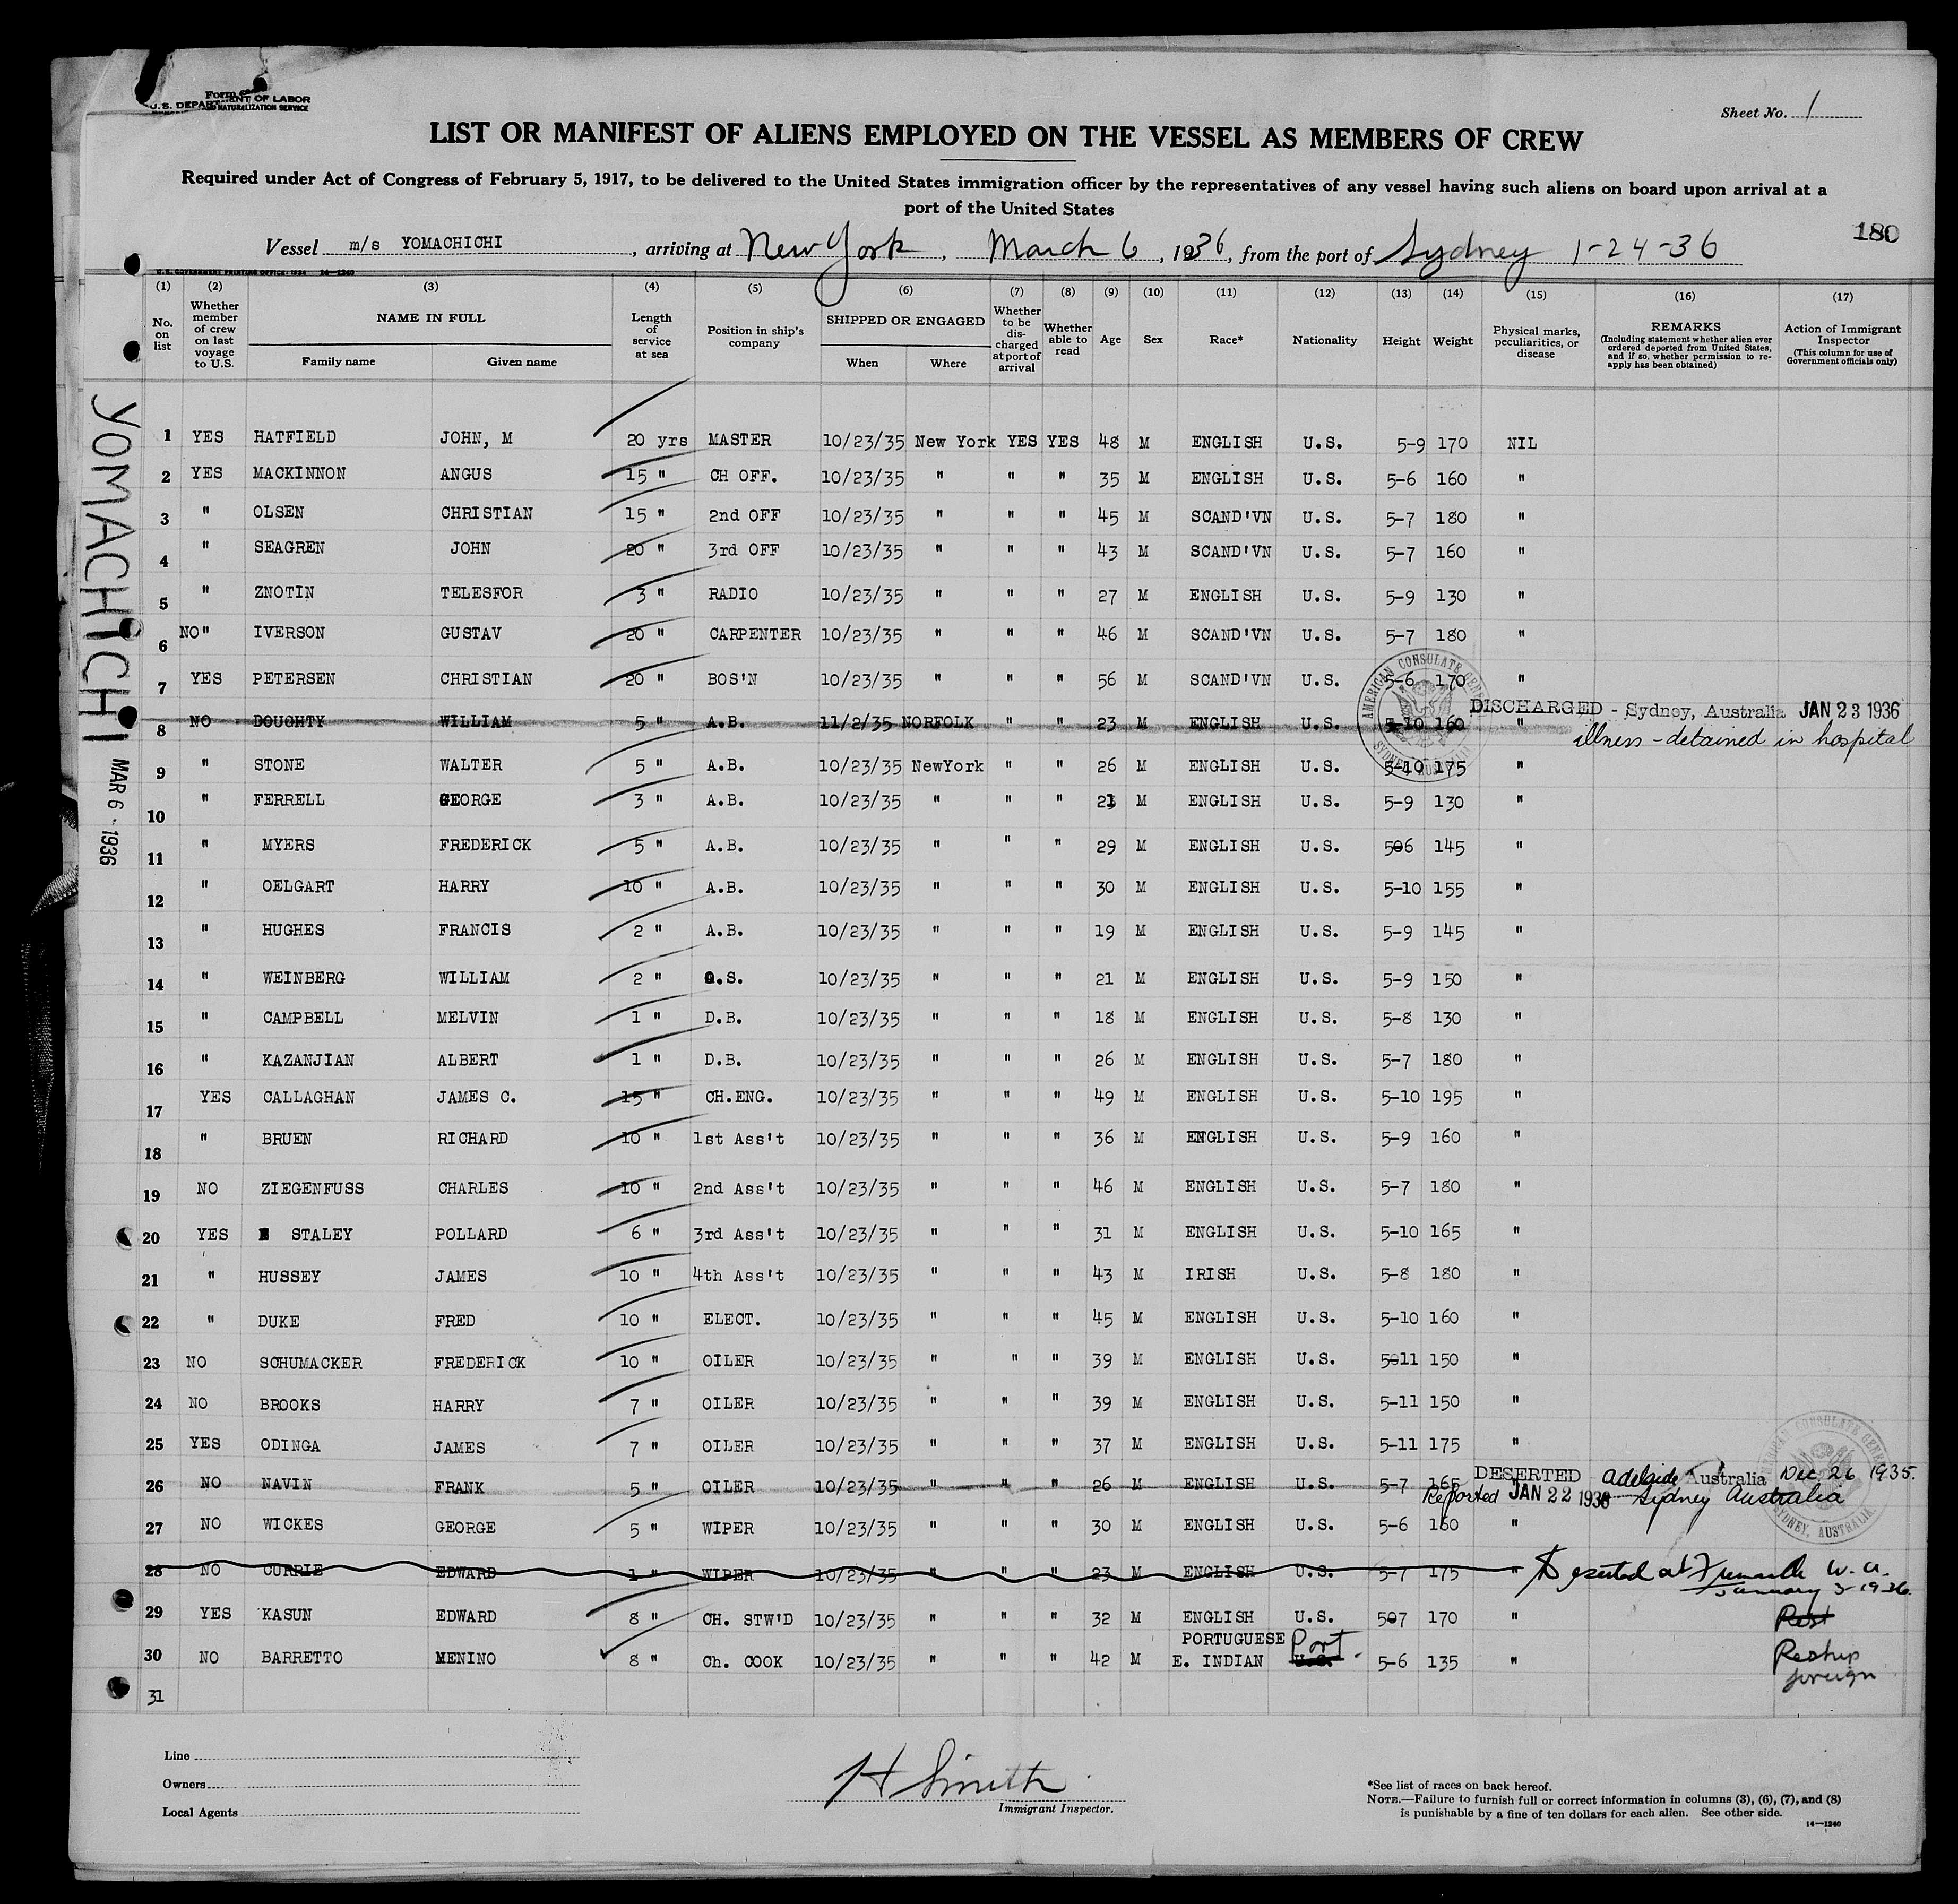 Form
U.S. DEPARTMENT OF LABOR
AND NATURALIZATION SERVICE
Sheet No. 1
LIST OR MANIFEST OF ALIENS EMPLOYED ON THE VESSEL AS MEMBERS OF CREW
Required under Act of Congress of February 5, 1917, to be delivered to the United States immigration officer by the representatives of any vessel having such aliens on board upon arrival at a
port of the United States
180
Vessel m/s YOMACHICHI, arriving at New York, March 6, 1936, from the port of Sydney 1-24-36
U.S. GOVERNMENT PRINTING OFFICE: 1934 14—1240
(1) (2) (3) (4) (5) (6) (7) (8) (9) (10) (11) (12) (13) (14) (15) (16) (17)
No. on list
Whether member of crew on last voyage to U.S.
NAME IN FULL
Family name Given name
Length of service at sea
Position in ship's company
SHIPPED OR ENGAGED
When Where
Whether to be discharged at port of arrival
Whether able to read
Age
Sex
Race*
Nationality
Height
Weight
Physical marks, peculiarities, or disease
REMARKS
(Including statement whether alien ever ordered deported from United States, and if so, whether permission to re-apply has been obtained)
Action of Immigrant Inspector
(This column for use of Government officials only)
YOMACHICHI MAR 6 - 1936
1 YES HATFIELD JOHN, M 20 yrs MASTER 10/23/35 New York YES YES 48 M ENGLISH U.S. 5-9 170 NIL
2 YES MACKINNON ANGUS 15 " CH OFF. 10/23/35 " " " 35 M ENGLISH U.S. 5-6 160 "
3 " OLSEN CHRISTIAN 15 " 2nd OFF 10/23/35 " " " 45 M SCAND'VN U.S. 5-7 180 "
4 " SEAGREN JOHN 20 " 3rd OFF 10/23/35 " " " 43 M SCAND'VN U.S. 5-7 160 "
5 " ZNOTIN TELESFOR 3 " RADIO 10/23/35 " " " 27 M ENGLISH U.S. 5-9 130 "
6 NO " IVERSON GUSTAV 20 " CARPENTER 10/23/35 " " " 46 M SCAND'VN U.S. 5-7 180 "
7 YES PETERSEN CHRISTIAN 20 " BOS'N 10/23/35 " " " 56 M SCAND'VN U.S. 5-6 170 "
8 NO DOUGHTY WILLIAM 5 " A.B. 11/2/35 NORFOLK " " 23 M ENGLISH U.S. 5-10 160 " DISCHARGED - Sydney, Australia JAN 23 1936
illness - detained in hospital
AMERICAN CONSULATE GENERAL SYDNEY, AUSTRALIA
9 " STONE WALTER 5 " A.B. 10/23/35 NewYork " " 26 M ENGLISH U.S. 5-10 175 "
10 " FERRELL GEORGE 3 " A.B. 10/23/35 " " " M ENGLISH U.S. 5-9 130 "
11 " MYERS FREDERICK 5 " A.B. 10/23/35 " " " 29 M ENGLISH U.S. 506 145 "
12 " OELGART HARRY 10 " A.B. 10/23/35 " " " 30 M ENGLISH U.S. 5-10 155 "
13 " HUGHES FRANCIS 2 " A.B. 10/23/35 " " " 19 M ENGLISH U.S. 5-9 145 "
14 " WEINBERG WILLIAM 2 " O.S. 10/23/35 " " " 21 M ENGLISH U.S. 5-9 150 "
15 " CAMPBELL MELVIN 1 " D.B. 10/23/35 " " " 18 M ENGLISH U.S. 5-8 130 "
16 " KAZANJIAN ALBERT 1 " D.B. 10/23/35 " " " 26 M ENGLISH U.S. 5-7 180 "
17 YES CALLAGHAN JAMES C. 15 " CH.ENG. 10/23/35 " " " 49 M ENGLISH U.S. 5-10 195 "
18 " BRUEN RICHARD 10 " 1st Ass't 10/23/35 " " " 36 M ENGLISH U.S. 5-9 160 "
19 NO ZIEGENFUSS CHARLES 10 " 2nd Ass't 10/23/35 " " " 46 M ENGLISH U.S. 5-7 180 "
20 YES STALEY POLLARD 6 " 3rd Ass't 10/23/35 " " " 31 M ENGLISH U.S. 5-10 165 "
21 " HUSSEY JAMES 10 " 4th Ass't 10/23/35 " " " 43 M IRISH U.S. 5-8 180 "
22 " DUKE FRED 10 " ELECT. 10/23/35 " " " 45 M ENGLISH U.S. 5-10 160 "
23 NO SCHUMACKER FREDERICK 10 " OILER 10/23/35 " " " 39 M ENGLISH U.S. 5011 150 "
24 NO BROOKS HARRY 7 " OILER 10/23/35 " " " 39 M ENGLISH U.S. 5-11 150 "
25 YES ODINGA JAMES 7 " OILER 10/23/35 " " " 37 M ENGLISH U.S. 5-11 175 "
26 NO NAVIN FRANK 5 " OILER 10/23/35 " " " 26 M ENGLISH U.S. 5-7 165 DESERTED Adelaide Australia Dec 26 1935.
Reported JAN 22 1936 Sydney Australia
AMERICAN CONSULATE GENERAL SYDNEY, AUSTRALIA
27 NO WICKES GEORGE 5 " WIPER 10/23/35 " " " 30 M ENGLISH U.S. 5-6 160 "
28 NO CURRIE EDWARD 1 " WIPER 10/23/35 " " " 23 M ENGLISH U.S. 5-7 175 " Deserted at Fremantle W.A.
January 3-1936.
29 YES KASUN EDWARD 8 " CH. STW'D 10/23/35 " " " 32 M ENGLISH U.S. 507 170 "
30 NO BARRETTO MENINO 8 " Ch. COOK 10/23/35 " " " 42 M PORTUGUESE E. INDIAN U.S. Port. 5-6 135 " Reship foreign
31
Line
Owners
Local Agents
H Smith
Immigrant Inspector.
*See list of races on back hereof.
NOTE.—Failure to furnish full or correct information in columns (3), (6), (7), and (8)
is punishable by a fine of ten dollars for each alien. See other side.
14—1240